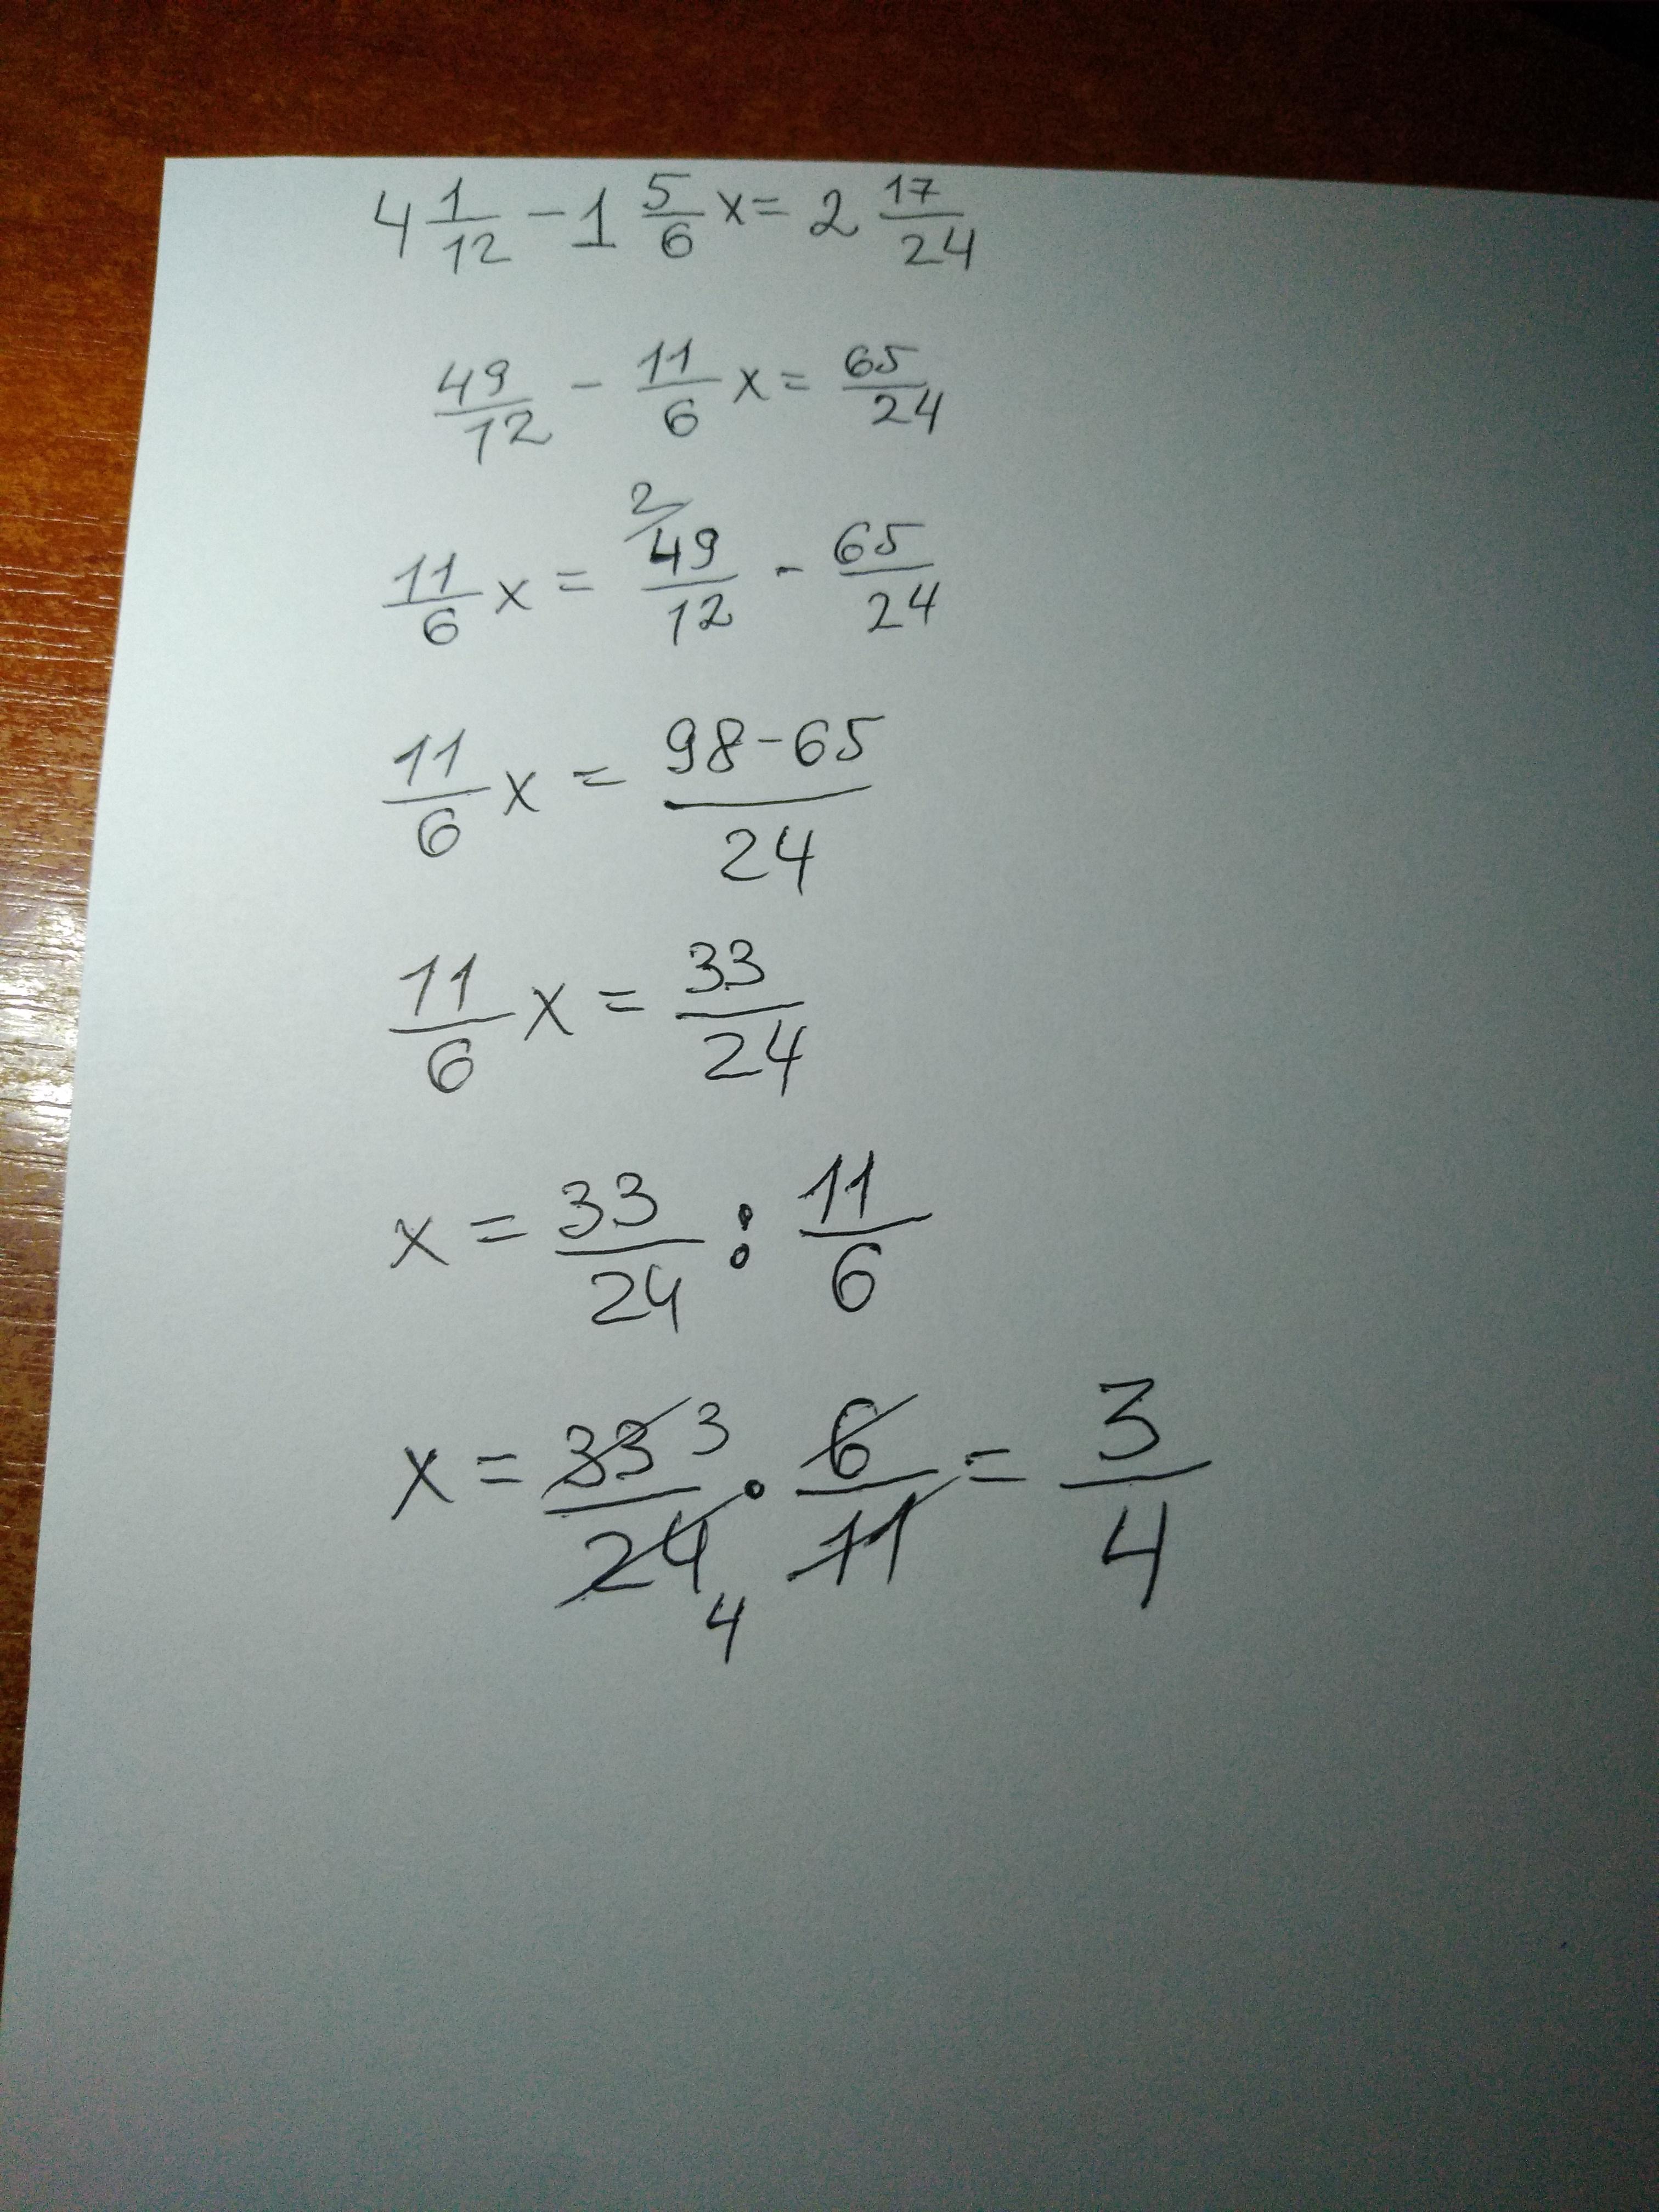 4 1/12 - 1 5/6 x = 2 17/24
49/12 - 11/6 x = 65/24
11/6 x = 2/ 49/12 - 65/24
11/6 x = 98-65/24
11/6 x = 33/24
x = 33/24 : 11/6
x = 33 3/24 4 · 6/11 = 3/4